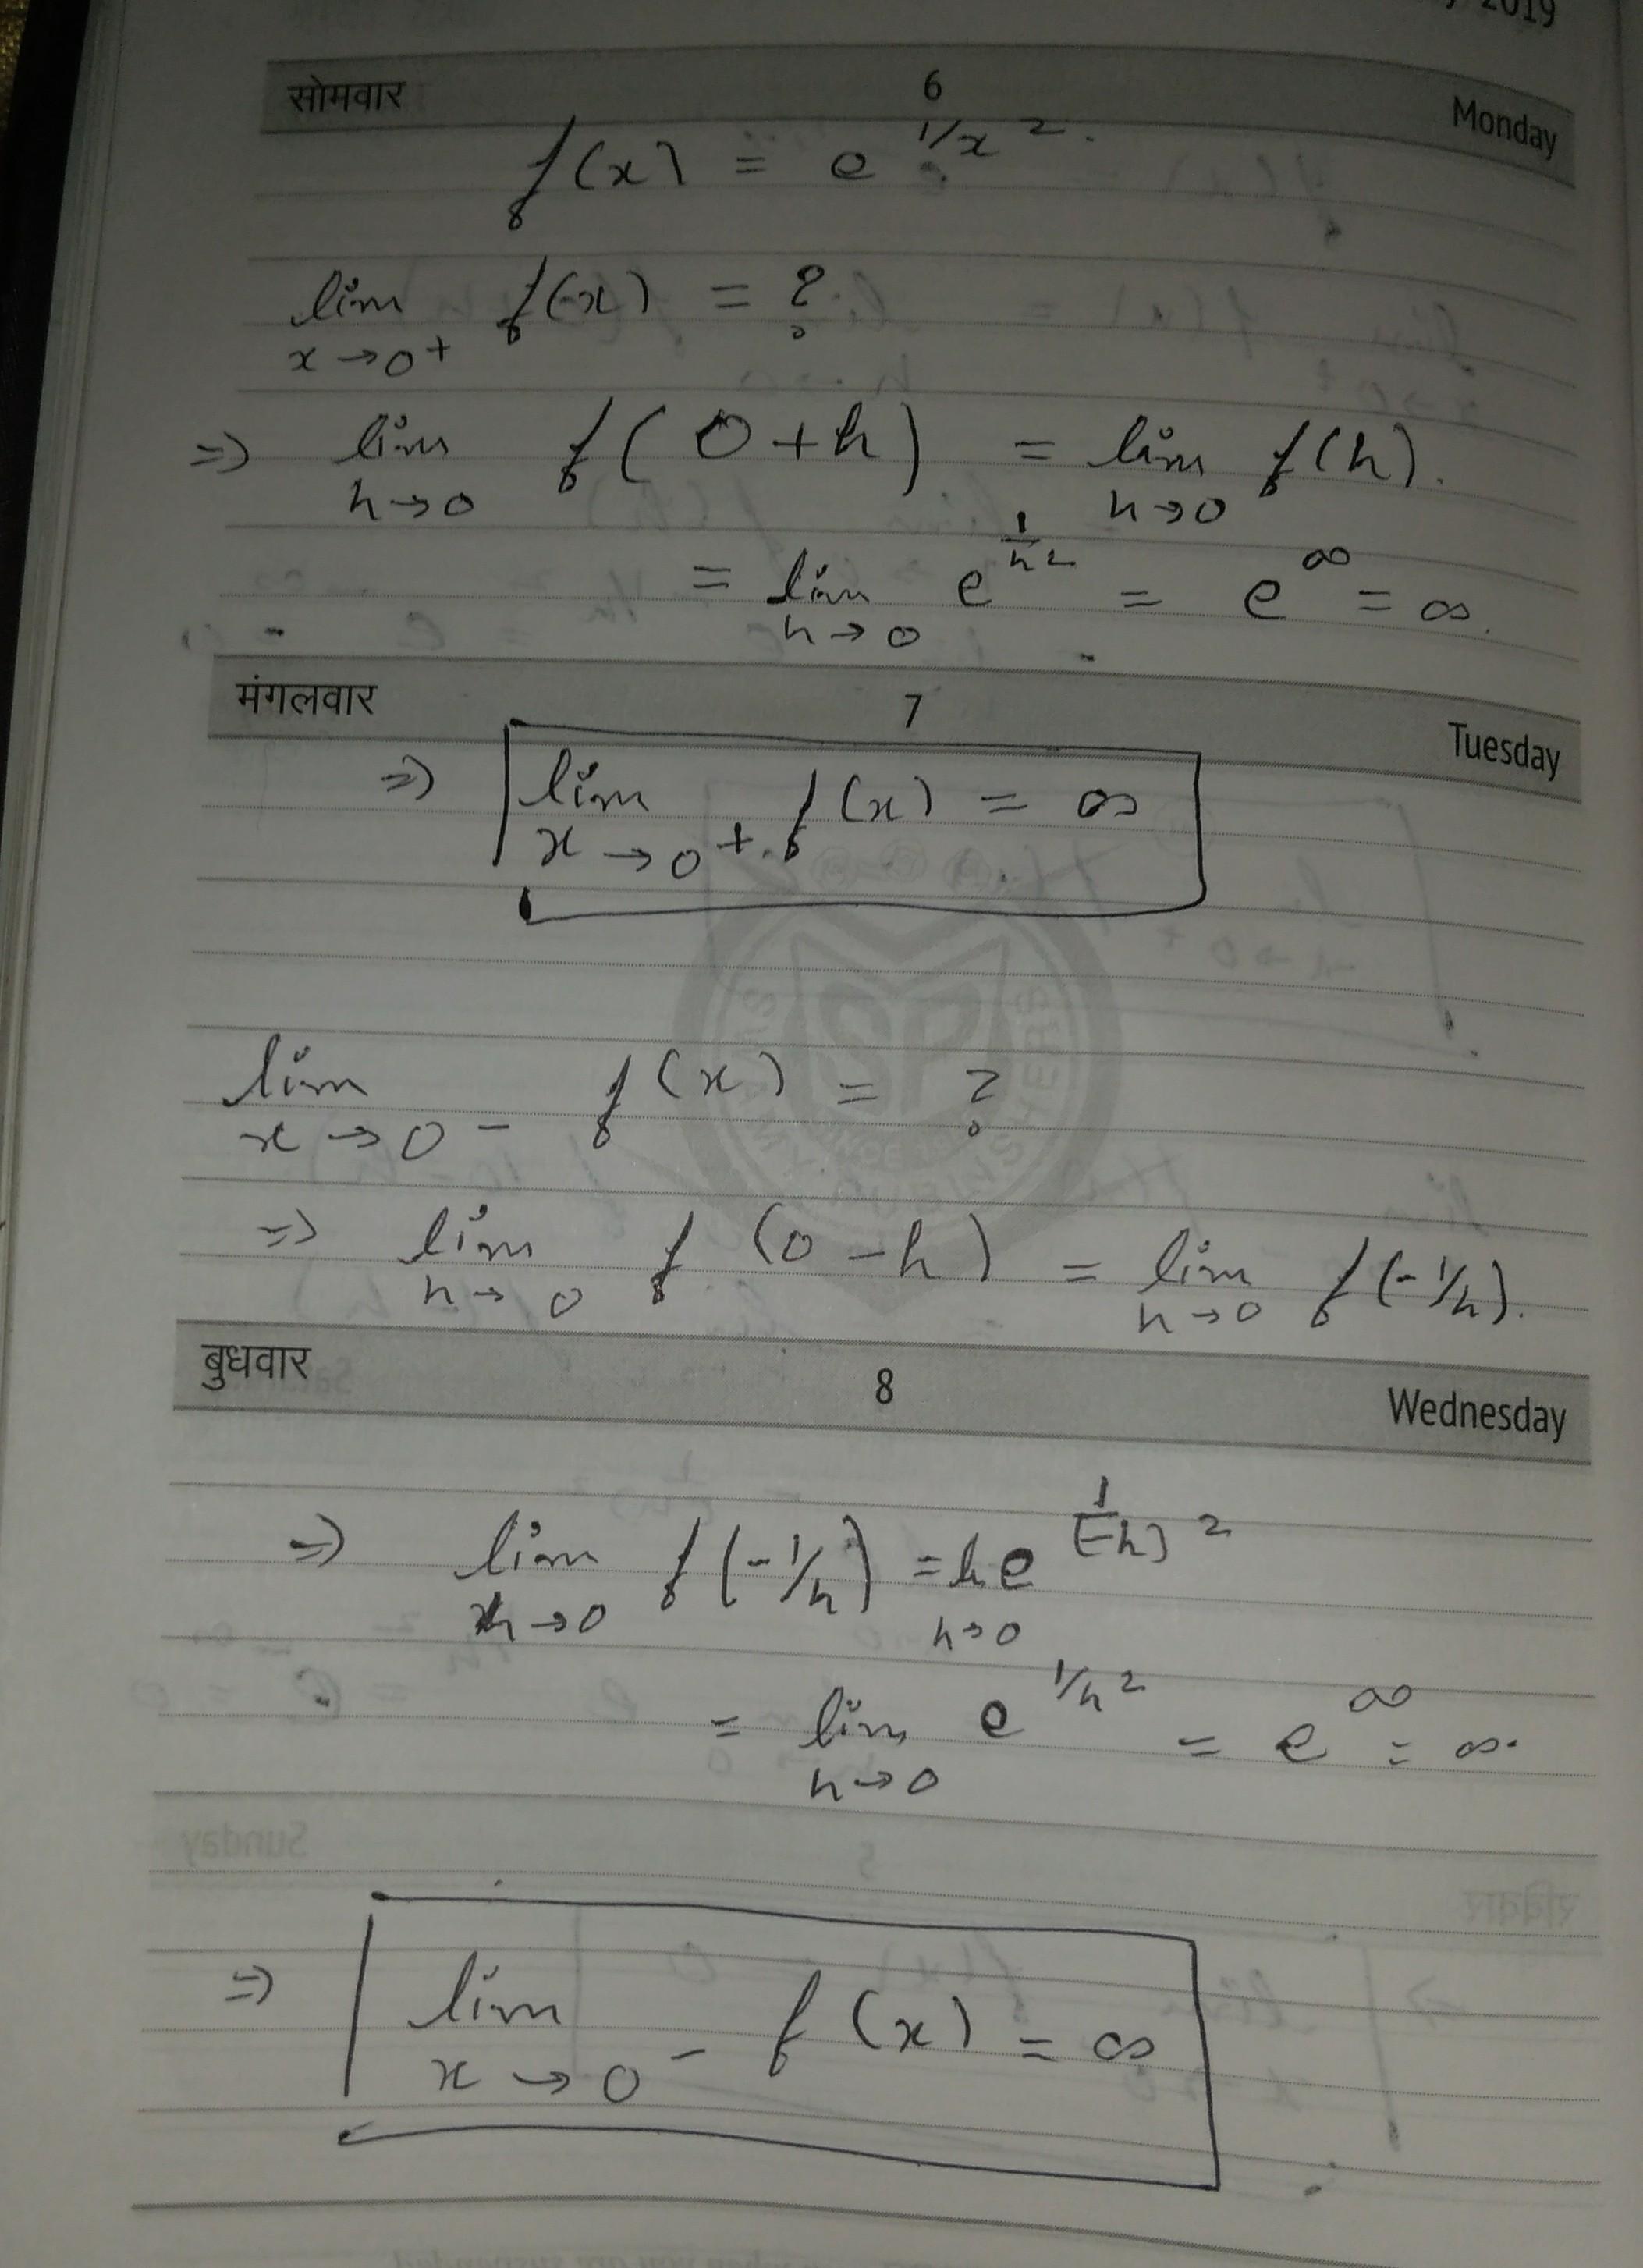 2019
सोमवार 6 Monday
f(x) = e^{1/x^2}.
lim_{x→0+} f(x) = ?
⇒ lim_{h→0} f(0+h) = lim_{h→0} f(h).
= lim_{h→0} e^{1/h^2} = e^∞ = ∞.
मंगलवार 7 Tuesday
⇒ lim_{x→0+} f(x) = ∞
lim_{x→0-} f(x) = ?
⇒ lim_{h→0} f(0-h) = lim_{h→0} f(-1/h).
बुधवार 8 Wednesday
⇒ lim_{h→0} f(-1/h) = lt_{h→0} e^{1/(-h)^2}
= lim_{h→0} e^{1/h^2} = e^∞ = ∞.
⇒ lim_{x→0-} f(x) = ∞